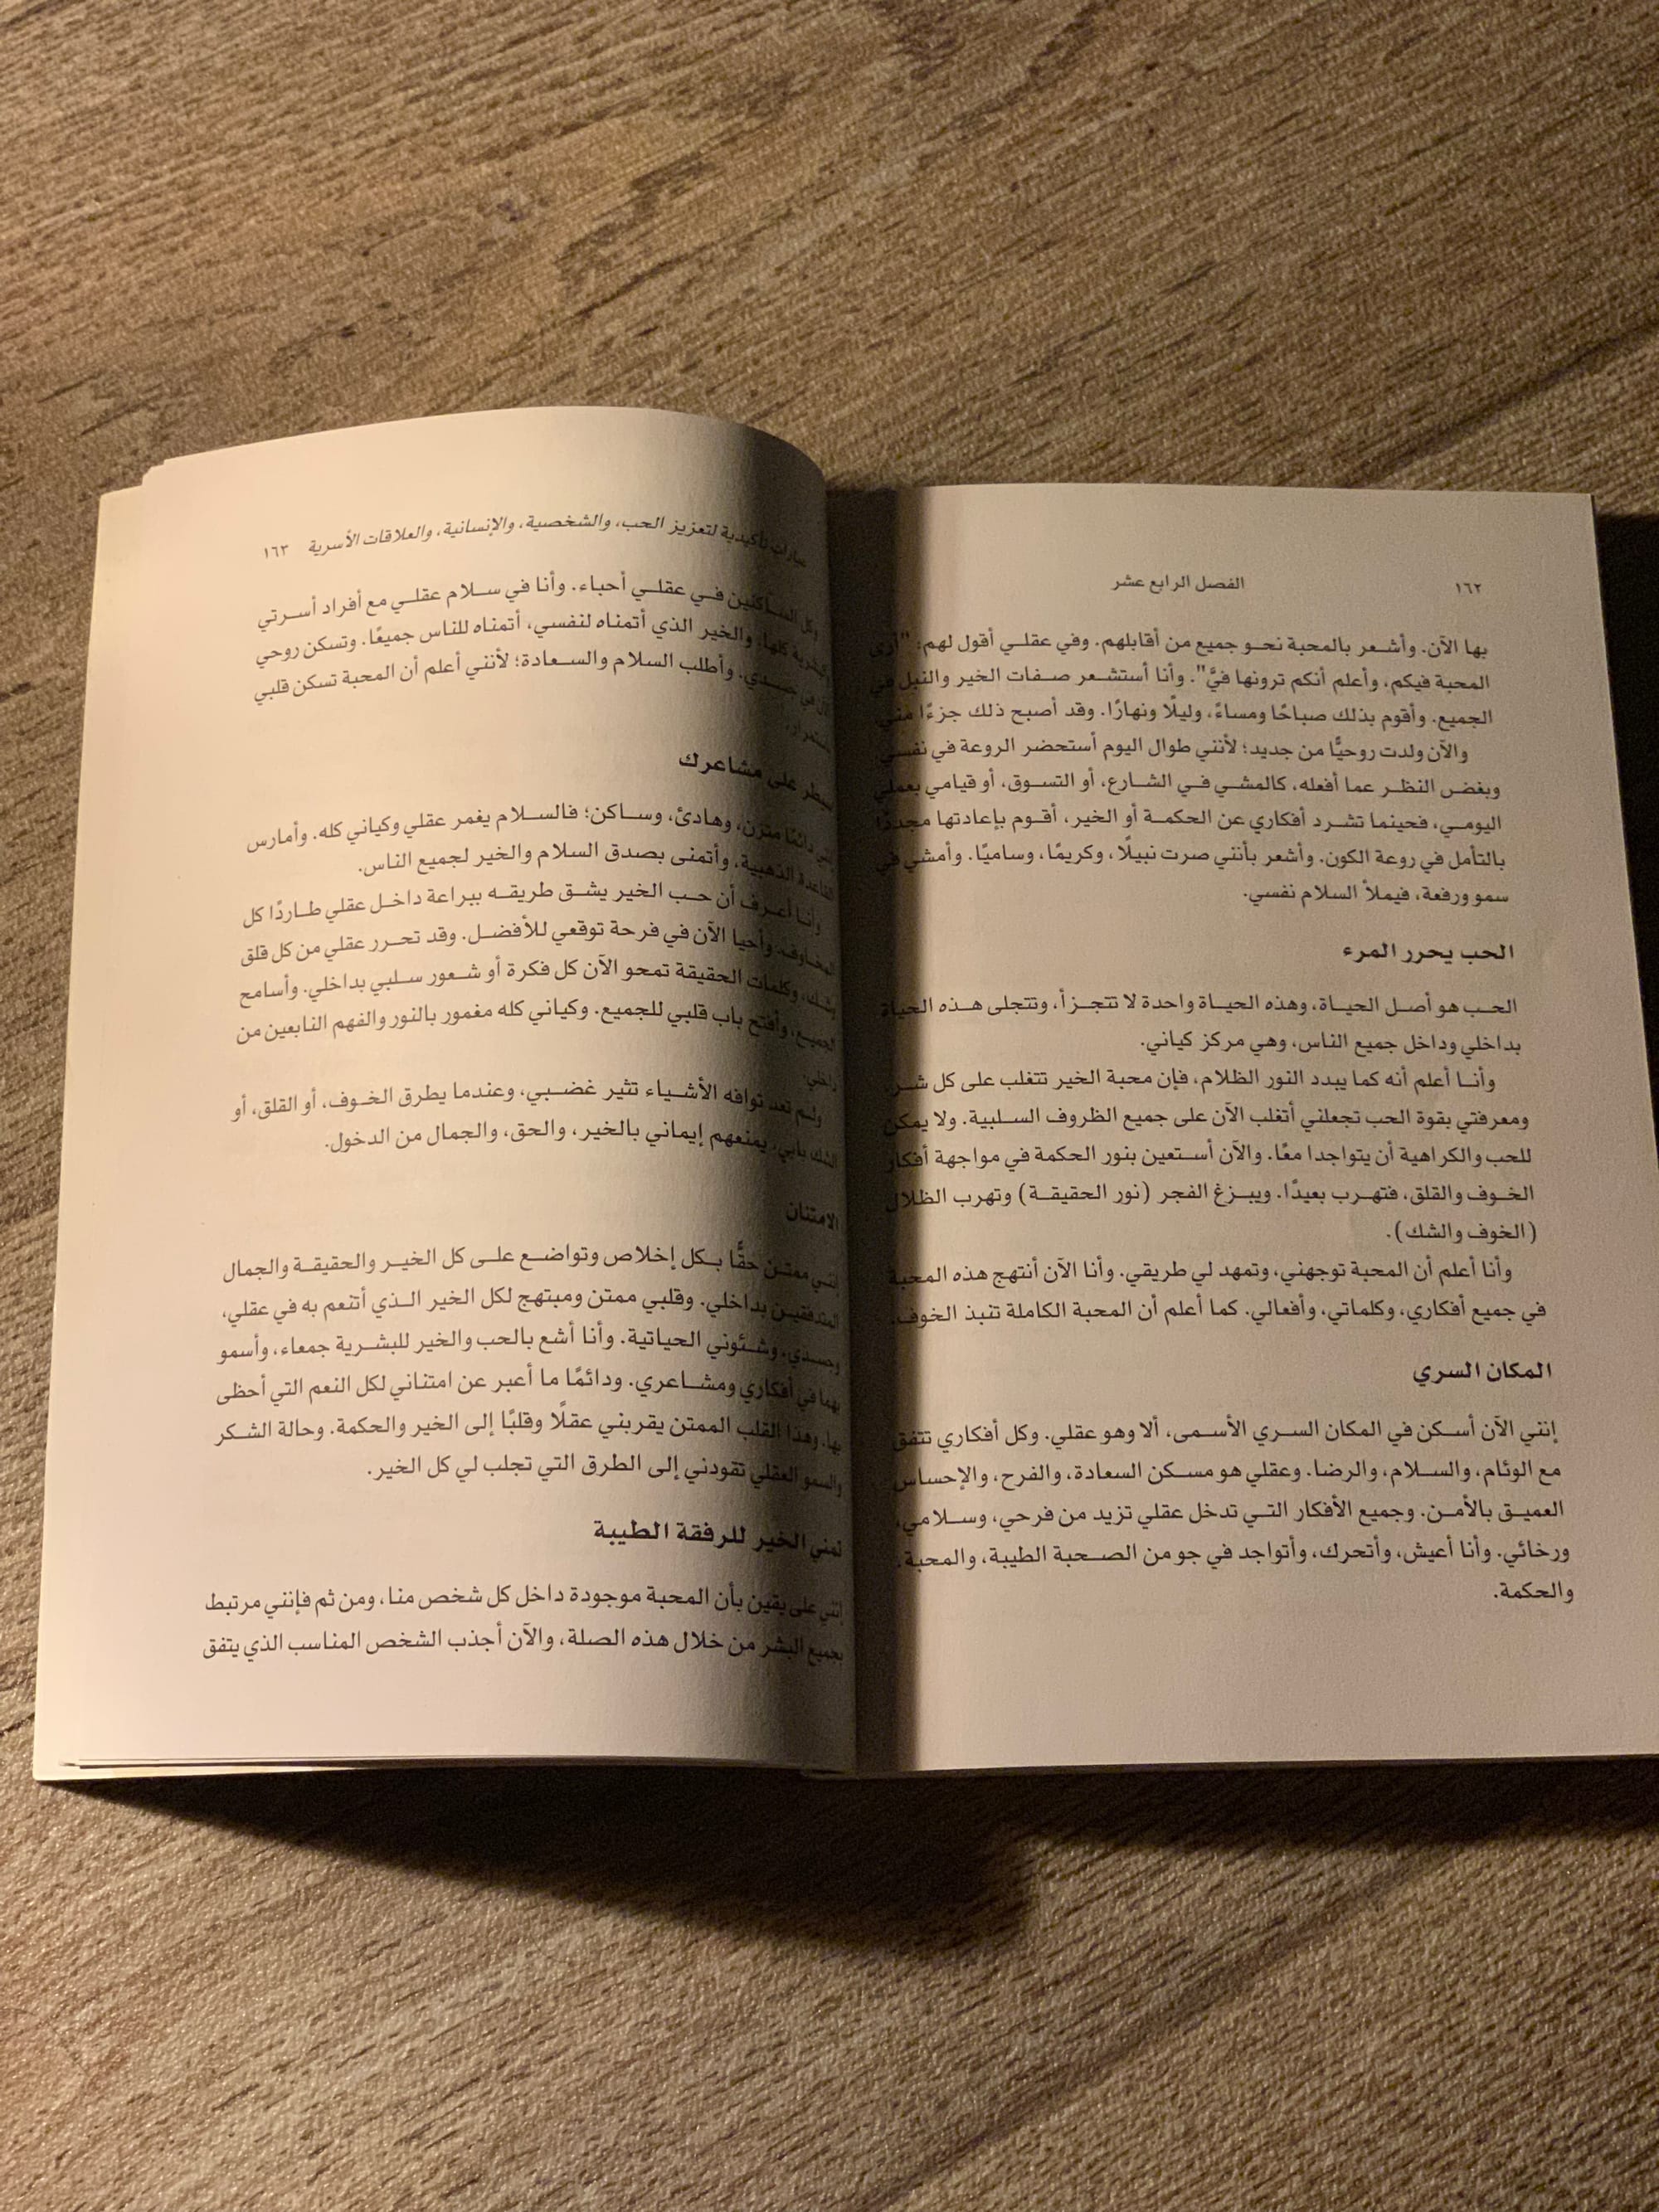 ١٦٢
الفصل الرابع عشر
بها الآن. وأشعر بالمحبة نحو جميع من أقابلهم. وفي عقلي أقول لهم: "أرى
المحبة فيكم، وأعلم أنكم ترونها فيَّ". وأنا أستشعر صفات الخير والنبل في
الجميع. وأقوم بذلك صباحًا ومساءً، وليلًا ونهارًا. وقد أصبح ذلك جزءًا مني.
والآن ولدت روحيًّا من جديد؛ لأنني طوال اليوم أستحضر الروعة في نفسي.
وبغض النظر عما أفعله، كالمشي في الشارع، أو التسوق، أو قيامي بعملي
اليومي، فحينما تشرد أفكاري عن الحكمة أو الخير، أقوم بإعادتها مجددًا
بالتأمل في روعة الكون. وأشعر بأنني صرت نبيلًا، وكريمًا، وساميًا. وأمشي في
سمو ورفعة، فيملأ السلام نفسي.
الحب يحرر المرء
الحب هو أصل الحياة، وهذه الحياة واحدة لا تتجزأ، وتتجلى هذه الحياة
بداخلي وداخل جميع الناس، وهي مركز كياني.
وأنا أعلم أنه كما يبدد النور الظلام، فإن محبة الخير تتغلب على كل شر.
ومعرفتي بقوة الحب تجعلني أتغلب الآن على جميع الظروف السلبية. ولا يمكن
للحب والكراهية أن يتواجدا معًا. والآن أستعين بنور الحكمة في مواجهة أفكار
الخوف والقلق، فتهرب بعيدًا. ويبزغ الفجر (نور الحقيقة) وتهرب الظلال
(الخوف والشك).
وأنا أعلم أن المحبة توجهني، وتمهد لي طريقي. وأنا الآن أنتهج هذه المحبة
في جميع أفكاري، وكلماتي، وأفعالي. كما أعلم أن المحبة الكاملة تنبذ الخوف.
المكان السري
إنني الآن أسكن في المكان السري الأسمى، ألا وهو عقلي. وكل أفكاري تتفق
مع الوئام، والسلام، والرضا. وعقلي هو مسكن السعادة، والفرح، والإحساس
العميق بالأمن. وجميع الأفكار التي تدخل عقلي تزيد من فرحي، وسلامي،
ورخائي. وأنا أعيش، وأتحرك، وأتواجد في جو من الصحبة الطيبة، والمحبة،
والحكمة.
عبارات تأكيدية لتعزيز الحب، والشخصية، والإنسانية، والعلاقات الأسرية ١٦٣
وكل الساكنين في عقلي أحباء. وأنا في سلام عقلي مع أفراد أسرتي
والبشرية كلها. والخير الذي أتمناه لنفسي، أتمناه للناس جميعًا. وتسكن روحي
الآن في جسدي. وأطلب السلام والسعادة؛ لأنني أعلم أن المحبة تسكن قلبي
باستمرار.
سيطر على مشاعرك
إنني دائمًا متزن، وهادئ، وساكن؛ فالسلام يغمر عقلي وكياني كله. وأمارس
القاعدة الذهبية، وأتمنى بصدق السلام والخير لجميع الناس.
وأنا أعرف أن حب الخير يشق طريقه ببراعة داخل عقلي طاردًا كل
المخاوف. وأحيا الآن في فرحة توقعي للأفضل. وقد تحرر عقلي من كل قلق
وشك. وكلمات الحقيقة تمحو الآن كل فكرة أو شعور سلبي بداخلي. وأسامح
الجميع. وأفتح باب قلبي للجميع. وكياني كله مغمور بالنور والفهم النابعين من
داخلي.
ولم تعد توافه الأشياء تثير غضبي، وعندما يطرق الخوف، أو القلق، أو
الشك بابي، يمنعهم إيماني بالخير، والحق، والجمال من الدخول.
الامتنان
إنني ممتن حقًّا بكل إخلاص وتواضع على كل الخير والحقيقة والجمال
المتدفقين بداخلي. وقلبي ممتن ومبتهج لكل الخير الذي أتنعم به في عقلي،
وجسدي، وشئوني الحياتية. وأنا أشع بالحب والخير للبشرية جمعاء، وأسمو
بهما في أفكاري ومشاعري. ودائمًا ما أعبر عن امتناني لكل النعم التي أحظى
بها. وهذا القلب الممتن يقربني عقلًا وقلبًا إلى الخير والحكمة. وحالة الشكر
والسمو العقلي تقودني إلى الطرق التي تجلب لي كل الخير.
تمني الخير للرفقة الطيبة
إنني على يقين بأن المحبة موجودة داخل كل شخص منا، ومن ثم فإنني مرتبط
بجميع البشر من خلال هذه الصلة، والآن أجذب الشخص المناسب الذي يتفق